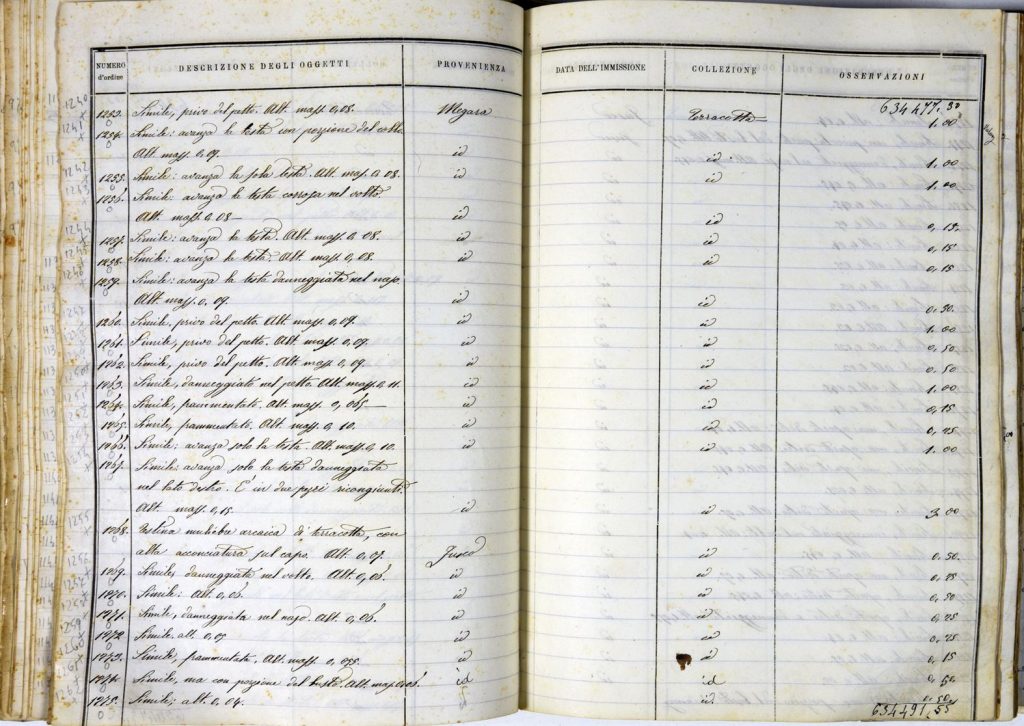 NUMERO d'ordine DESCRIZIONE DEGLI OGGETTI PROVENIENZA DATA DELL'IMMISSIONE COLLEZIONE OSSERVAZIONI
634477.30
1253. Simile, privo del petto. Alt. mass. 0,08. Megara Terracotta 1.00
1254. Simile: avanza la testa con porzione del collo.
Alt. mass. 0,07. id id 1.00
1255. Simile: avanza la sola testa. Alt. mass. 0.08. id id 1.00
1256. Simile: avanza la testa corrosa nel volto.
Alt. mass. 0.08— id id 0,15.
1257. Simile: avanza la testa. Alt. mass. 0.08. id id 0,15
1258. Simile: avanza la testa. Alt. mass. 0,08. id id 0,15
1259. Simile: avanza la testa danneggiata nel naso.
Alt. mass. 0,09. id id 0.50
1260. Simile, privo del petto. Alt. mass. 0,09. id id 1.00
1261. Simile, privo del petto. Alt. mass. 0,09. id id 0,50
1262. Simile, privo del petto. Alt. mass. 0,09. id id 0.50
1263. Simile, danneggiato nel petto. Alt. mass. 0,11. id id 1.00
1264. Simile, frammentato. Alt. mass. 0,065— id id 0,15
1265. Simile, frammentato. Alt. mass. 0,10. id id 0,25
1266. Simile: avanza solo la testa. Alt. mass. 0,10. id id 1.00
1267. Simile: avanza solo la testa danneggiata
nel lato destro. È in due pezzi ricongiunti.
Alt. mass. 0,15 id id 3.00
1268. Testina muliebre arcaica di terracotta, con
alta acconciatura sul capo. Alt. 0,07. id 0,50.
1269. Simile, danneggiata nel volto. Alt. 0,06. id id 0,25
1270. Simile: Alt. 0,06. id id 0,50
1271. Simile, danneggiata nel naso. Alt. 0,06. id id 0,25
1272. Simile. alt. 0,05 id id 0,25
1273. Simile, frammentata. Alt. mass. 0,055. id id 0,15
1274. Simile, ma con porzione del busto. Alt. mass. 0,06. id id 0.50
1275. Simile; alt. 0,04. id 0.50
634491.55